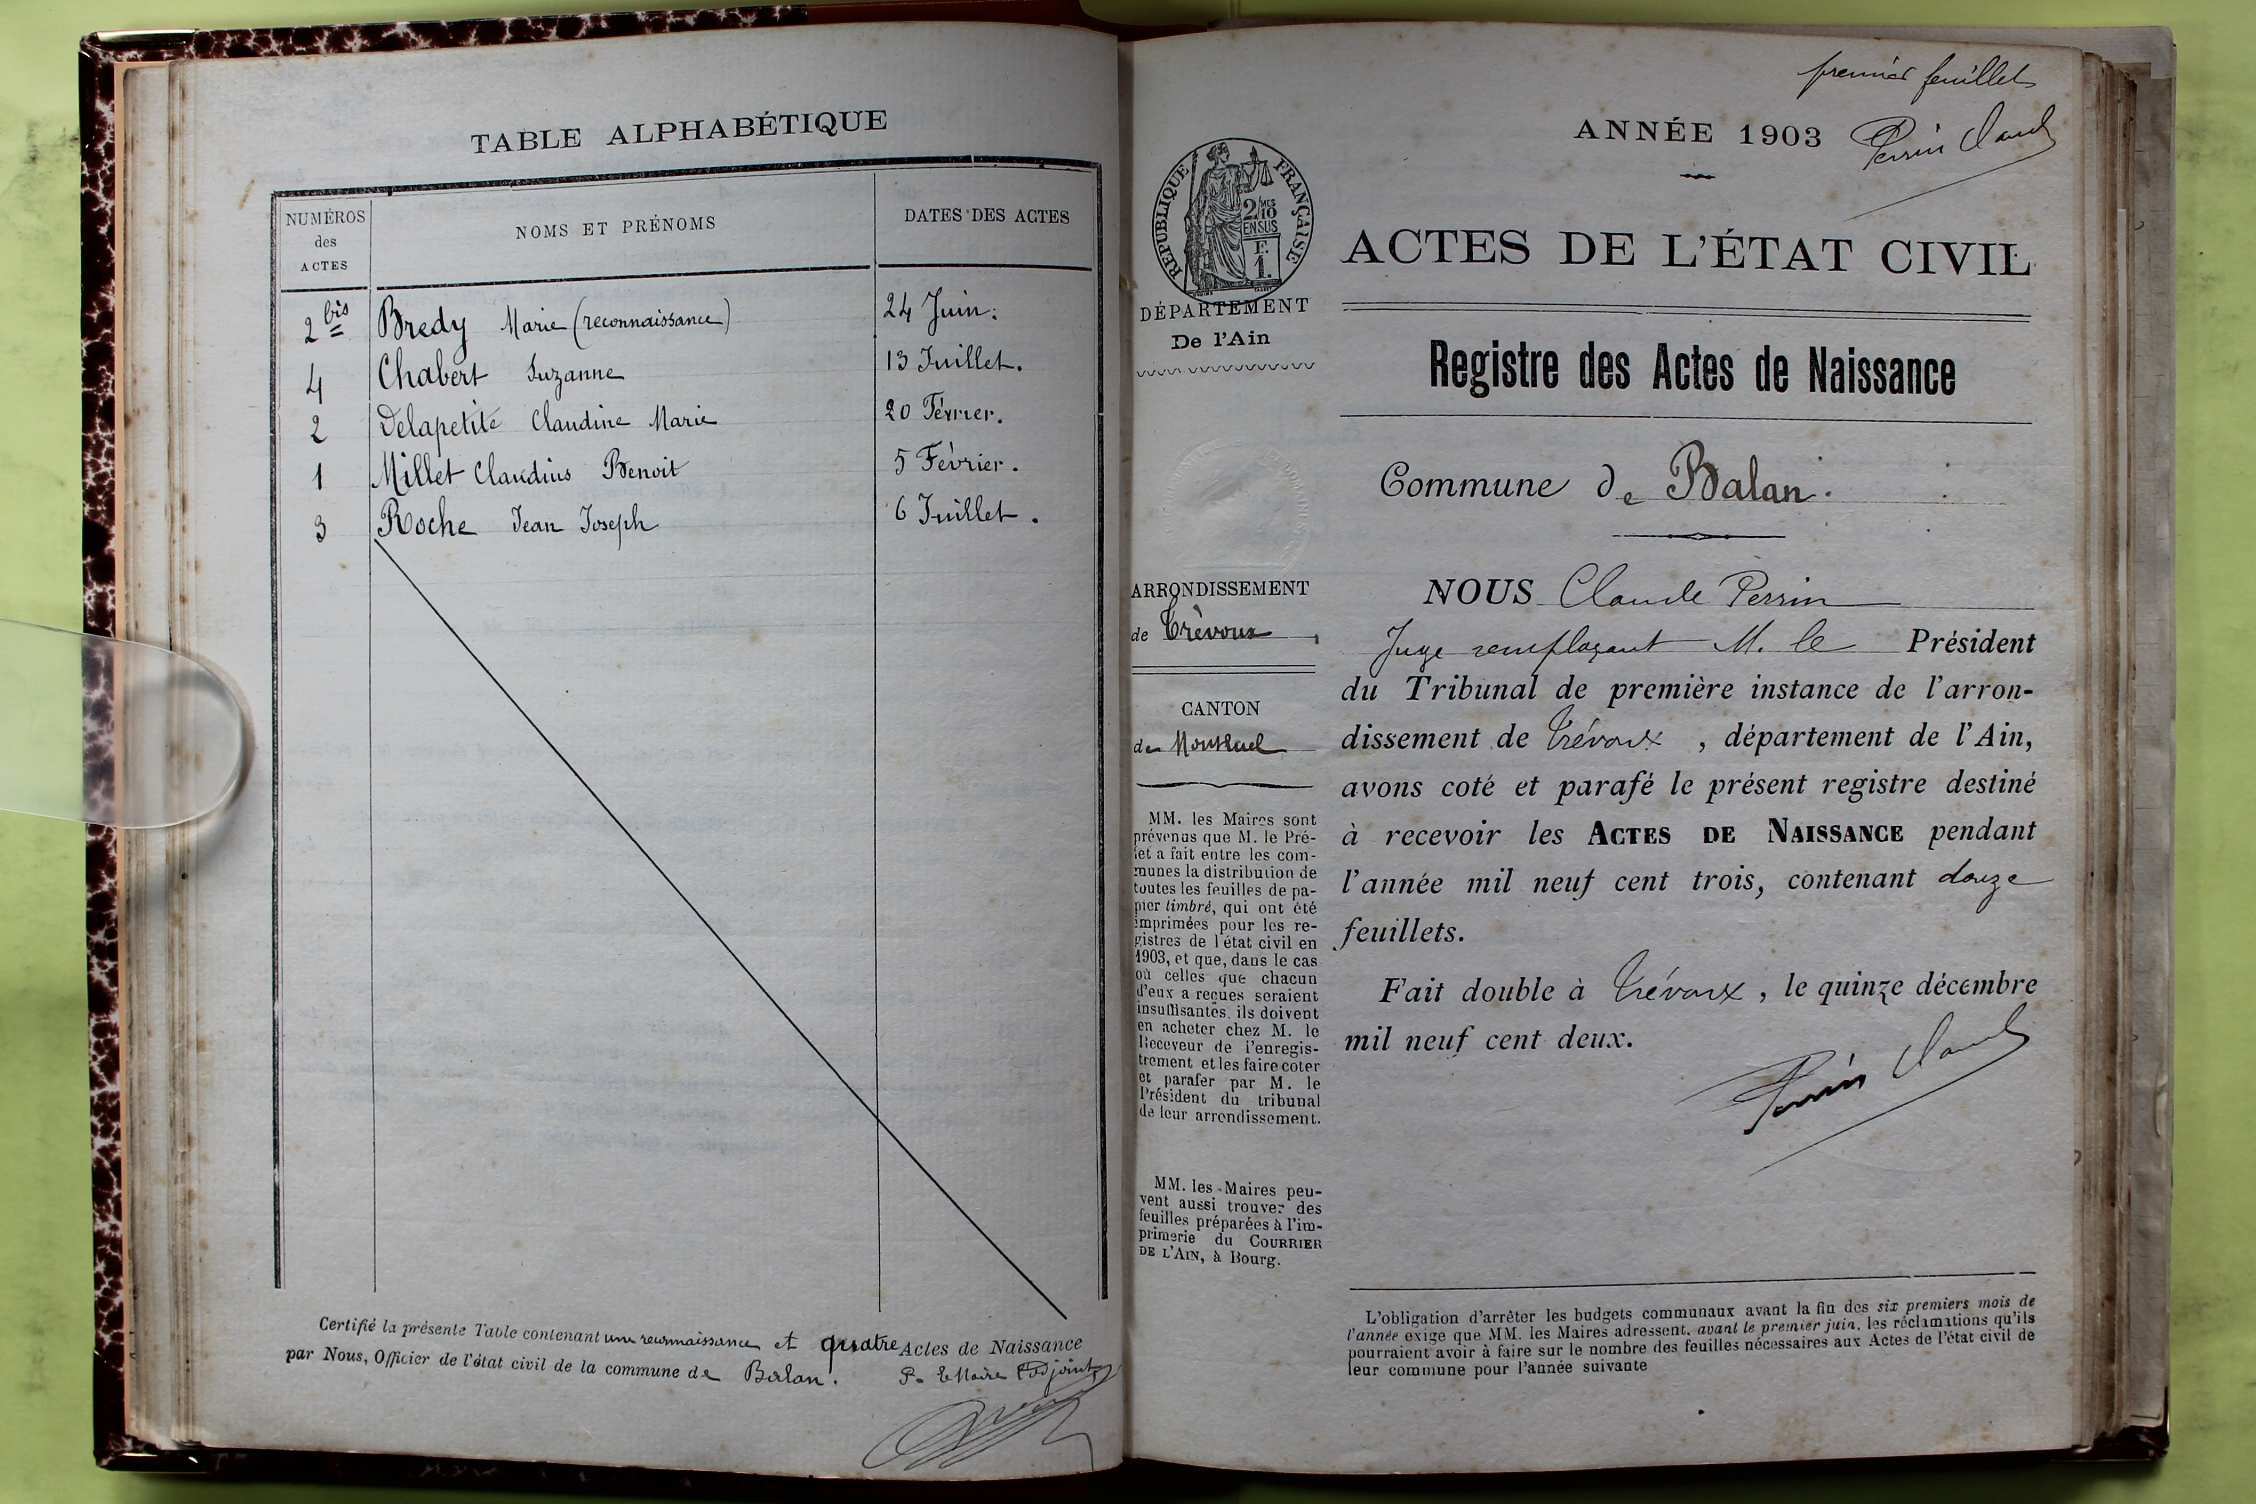 TABLE ALPHABÉTIQUE
NUMÉROS des ACTES NOMS ET PRÉNOMS DATES DES ACTES
2 bis Bredy Marie (reconnaissance) 24 Juin.
4 Chabert Suzanne 13 Juillet.
2 Delapetite Claudine Marie 20 Février.
1 Millet Claudius Benoit 5 Février.
3 Roche Jean Joseph 6 Juillet.
Certifié la présente Table contenant une reconnaissance et quatre Actes de Naissance
par Nous, Officier de l'état civil de la commune de Balan.
P. le Maire l'Adjoint
premier feuillet
ANNÉE 1903 Perrin Claude
RÉPUBLIQUE FRANÇAISE
2/10 MES
EN SUS
F.
1.
DÉPARTEMENT
De l'Ain
ARRONDISSEMENT
de Trévoux
CANTON
de Montluel
MM. les Maires sont
prévenus que M. le Pré-
fet a fait entre les com-
munes la distribution de
toutes les feuilles de pa-
pier timbré, qui ont été
imprimées pour les re-
gistres de l'état civil en
1903, et que, dans le cas
où celles que chacun
d'eux a reçues seraient
insuffisantes, ils doivent
en acheter chez M. le
Receveur de l'enregis-
trement et les faire coter
et parafer par M. le
Président du tribunal
de leur arrondissement.
MM. les Maires peu-
vent aussi trouver des
feuilles préparées à l'im-
primerie du COURRIER
DE L'AIN, à Bourg.
ACTES DE L'ÉTAT CIVIL
Registre des Actes de Naissance
Commune de Balan.
NOUS Claude Perrin
Juge remplaçant M. le Président
du Tribunal de première instance de l'arron-
dissement de Trévoux, département de l'Ain,
avons coté et parafé le présent registre destiné
à recevoir les ACTES DE NAISSANCE pendant
l'année mil neuf cent trois, contenant douze
feuillets.
Fait double à Trévoux, le quinze décembre
mil neuf cent deux.
Perrin Claude
L'obligation d'arrêter les budgets communaux avant la fin des six premiers mois de
l'année exige que MM. les Maires adressent, avant le premier juin, les réclamations qu'ils
pourraient avoir à faire sur le nombre des feuilles nécessaires aux Actes de l'état civil de
leur commune pour l'année suivante